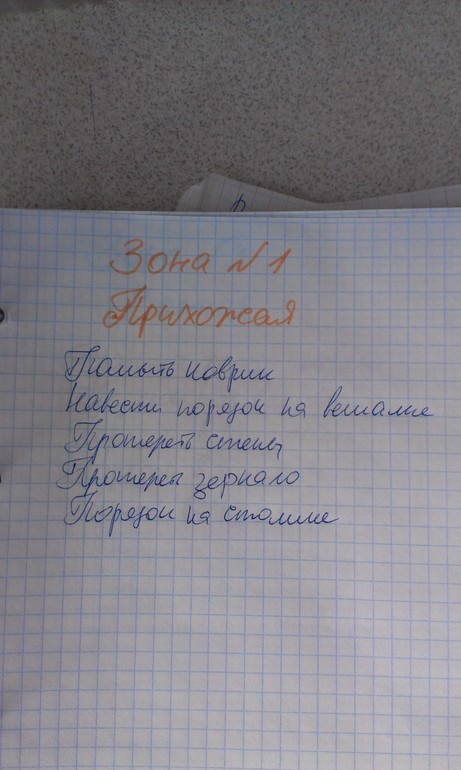 Зона №1
Прихожая
Помыть коврик
Навести порядок на вешалке
Протереть стены
Протереть зеркало
Порядок на столике